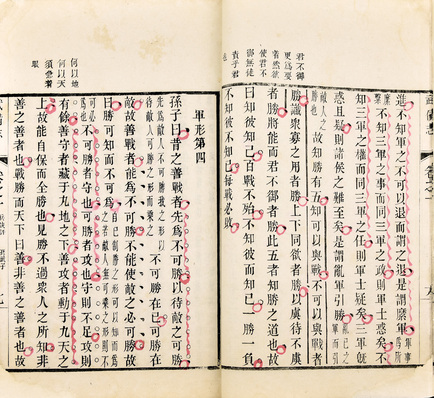 君不御
更爲要
者然欲
使君不
御無徒
責于君
也
進不知軍之不可以退而謂之退是謂縻軍
不知三軍之事而同三軍之政則軍士惑矣不
知三軍之權而同三軍之任則軍士疑矣三軍既
惑且疑則諸侯之難至矣是謂亂軍引勝
故知勝有五知可以與戰不可以與戰者
勝識衆寡之用者勝上下同欲者勝以虞待不虞
者勝將能而君不御者勝此五者知勝之道也故
曰知彼知己百戰不殆不知彼而知己一勝一負
不知彼不知己每戰必敗
何以地
何以天
須參看
軍形第四
孫子曰昔之善戰者先爲不可勝以待敵之可勝
先爲敵人不可勝我之形以
待敵人可勝之形而乘之
不可勝在己可勝在
敵故善戰者能爲不可勝不能使敵之必可勝故
曰勝可知而不可爲
不可勝者守也可勝者攻也守則不足攻則
有餘善守者藏于九地之下善攻者動于九天之
上故能自保而全勝也見勝不過衆人之所知非
善之善者也戰勝而天下曰善非善之善者也故